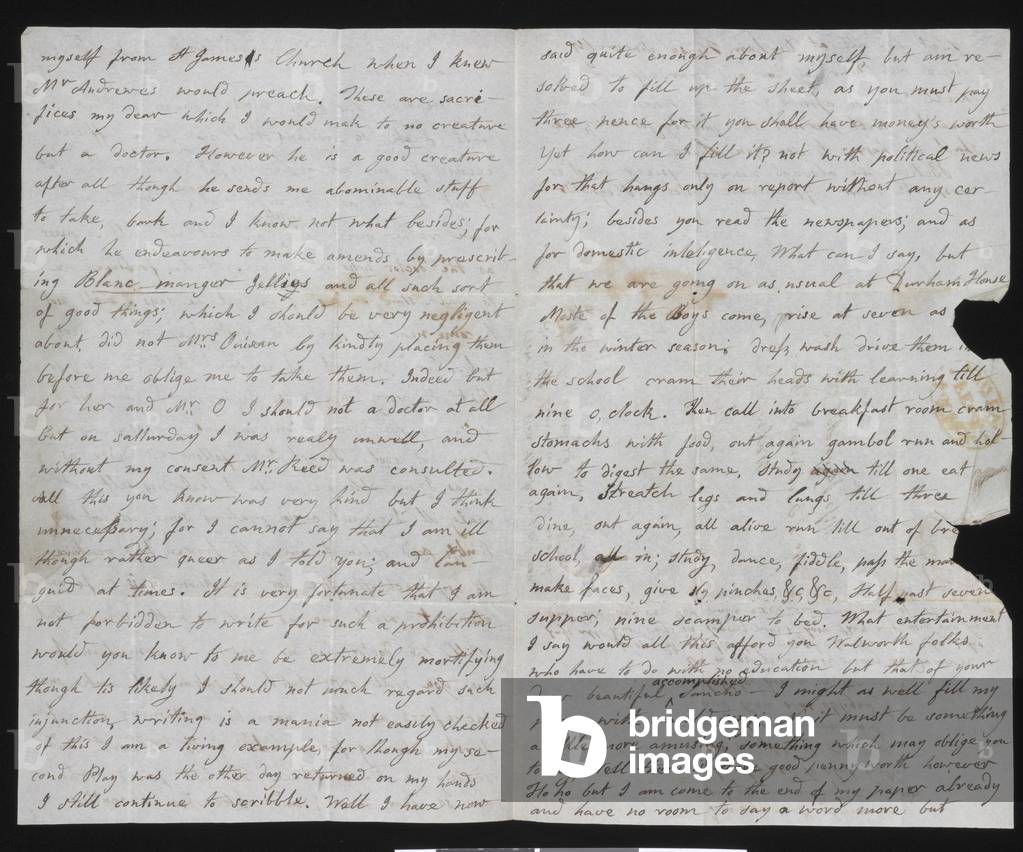 myself from St James's Church when I knew
Mr Andrewes would preach. These are sacri-
fices my dear which I would mak to no creature
but a doctor. However he is a good creature
after all though he sends me abominable stuff
to take, bark and I know not what besides; for
which he endeavours to make amends by prescrib-
ing Blanc-manger Jellies and all such sort
of good things; which I should be very negligent
about did not Mrs by kindly placing them
before me oblige me to take them. Indeed but
for her and Mr. O I should not a doctor at all
but on satturday I was realy unwell, and
without my consent Mr. Reed was consulted.
All this you know was very kind but I think
unnecessary; for I cannot say that I am ill
though rather queer as I told you; and lan-
guid at times. It is very fortunate that I am
not forbidden to write for such a prohibition
would you know to me be extremely mortifying
though tis likely I should not much regard such
injunction, writing is a mania not easily checked
of this I am a living example, for though my se-
cond Play was the other day returned on my hands
I still continue to scribble. Well I have now
said quite enough about myself, but am re-
solved to fill up the sheet, as you must pay
three pence for it you shall have money's worth
Yet how can I fill it? not with political news
for that hangs only on report without any cer-
tainty; besides you read the newspapers; and as
for domestic inteligence, What can I say, but
that we are going on as usual at Durham House
Moste of the Boys come, rise at seven as
in the winter season; dress wash drive them
the school cram their heads with learning till
nine o,clock. then call into breakfast room cram
stomachs with food, out again gambol run and hol-
low to digest the same, study again till one eat
again, streatch legs and lungs till three
dine, out again, all alive run till out of
school, all in; study, dance, fiddle, pass the
make faces, give sly pinches, &c, &c, Half past seven
supper; nine scamper to bed. What entertainment
I say would all this afford you Walworth folks
who have to do with no education but that of your
dear beautiful accomplished Sancho - I might as well fill my
it must be something
more amusing, something which may oblige you
good pennyworth however
Ho ho but I am come to the end of my paper already
and have no room to say a word more but
b bridgeman images